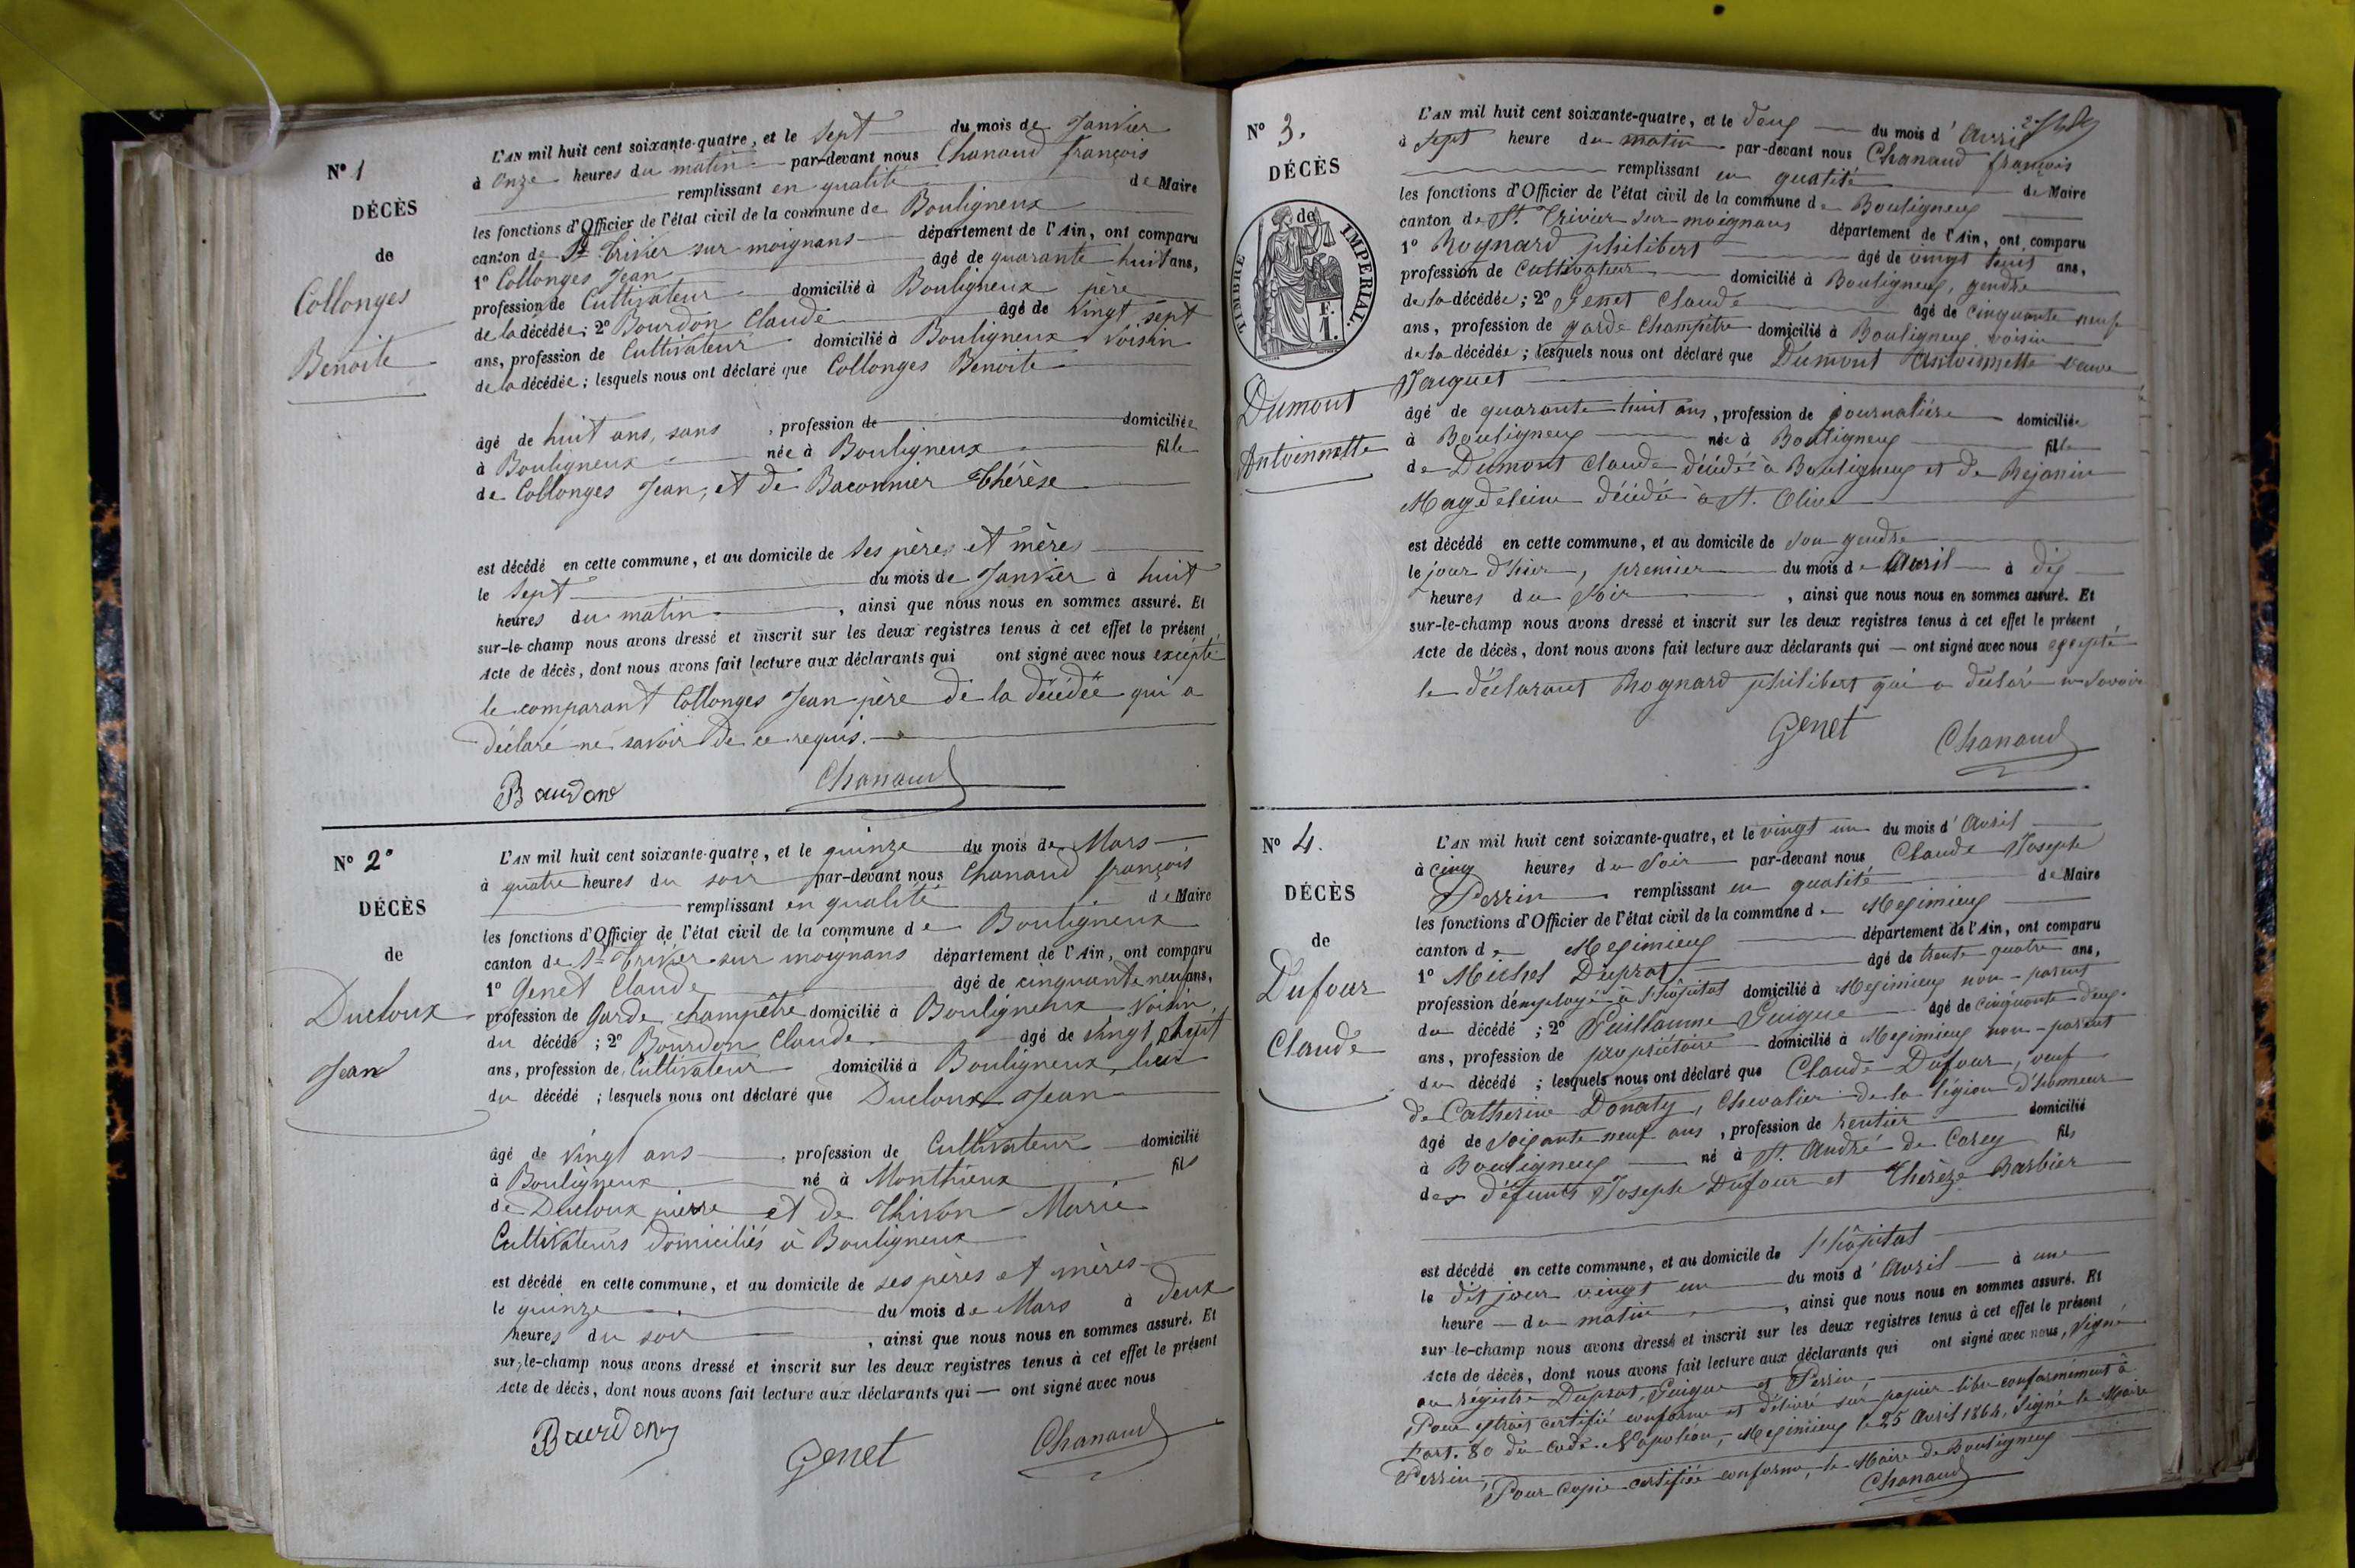 N° 1
DÉCÈS
de
Collonges
Benoite
L'AN mil huit cent soixante-quatre, et le sept du mois de Janvier
à onze heures du matin par-devant nous Chanaud françois
remplissant en qualité de Maire
les fonctions d'Officier de l'état civil de la commune de Bouligneux
canton de St Trivier sur moignans département de l'Ain, ont comparu
1° Collonges Jean âgé de quarante huit ans,
profession de Cultivateur domicilié à Bouligneux père
de la décédée; 2° Bourdon Claude âgé de vingt sept
ans, profession de Cultivateur domicilié à Bouligneux voisin
de la décédée; lesquels nous ont déclaré que Collonges Benoite
âgé de huit ans, sans, profession de domiciliée
à Bouligneux née à Bouligneux fille
de Collonges Jean, et de Baconnier Thérèse
est décédé en cette commune, et au domicile de ses pères et mères
le sept du mois de Janvier à huit
heures du matin, ainsi que nous nous en sommes assuré. Et
sur-le-champ nous avons dressé et inscrit sur les deux registres tenus à cet effet le présent
Acte de décès, dont nous avons fait lecture aux déclarants qui ont signé avec nous excepté
le comparant Collonges Jean père de la décédée qui a
déclaré ne savoir de ce requis.
Bourdon Chanaud
N° 2°
DÉCÈS
de
Ducloux
Jean
L'AN mil huit cent soixante-quatre, et le quinze du mois de Mars
à quatre heures du soir par-devant nous Chanaud françois
remplissant en qualité de Maire
les fonctions d'Officier de l'état civil de la commune de Bouligneux
canton de St Trivier sur moignans département de l'Ain, ont comparu
1° Genet Claude âgé de cinquante neuf ans,
profession de Garde champêtre domicilié à Bouligneux voisin
du décédé; 2° Bourdon Claude âgé de vingt sept
ans, profession de Cultivateur domicilié à Bouligneux
du décédé; lesquels nous ont déclaré que Ducloux Jean
âgé de vingt ans, profession de Cultivateur domicilié
à Bouligneux né à Monthieux fils
de Ducloux pierre et de Thivon Marie
Cultivateurs domiciliés à Bouligneux
est décédé en cette commune, et au domicile de ses pères et mères
le quinze du mois de Mars à deux
heures du soir, ainsi que nous nous en sommes assuré. Et
sur-le-champ nous avons dressé et inscrit sur les deux registres tenus à cet effet le présent
Acte de décès, dont nous avons fait lecture aux déclarants qui — ont signé avec nous
Bourdon Genet Chanaud
N° 3.
DÉCÈS
de
TIMBRE IMPÉRIAL.
F. 1.
Dumont
Antoinette
L'AN mil huit cent soixante-quatre, et le deux du mois d'Avril
à sept heure du matin par-devant nous Chanaud françois
remplissant en qualité de Maire
les fonctions d'Officier de l'état civil de la commune de Bouligneux
canton de St. Trivier sur moignans département de l'Ain, ont comparu
1° Rognard philibert âgé de vingt huit ans,
profession de Cultivateur domicilié à Bouligneux, gendre
de la décédée; 2° Genet Claude âgé de cinquante neuf
ans, profession de garde champêtre domicilié à Bouligneux voisin
de la décédée; lesquels nous ont déclaré que Dumont Antoinette veuve
Janguet
âgé de quarante huit ans, profession de journalière domiciliée
à Bouligneux née à Bouligneux fille
de Dumont Claude décédé à Bouligneux et de Rejanin
Magdeleine décédée à St. Olive
est décédé en cette commune, et au domicile de son gendre
le jour d'hier, premier du mois de Avril à dix
heures du soir, ainsi que nous nous en sommes assuré. Et
sur-le-champ nous avons dressé et inscrit sur les deux registres tenus à cet effet le présent
Acte de décès, dont nous avons fait lecture aux déclarants qui — ont signé avec nous excepté
le déclarant Rognard philibert qui a déclaré ne savoir
Genet Chanaud
N° 4.
DÉCÈS
de
Dufour
Claude
L'AN mil huit cent soixante-quatre, et le vingt un du mois d'Avril
à cinq heures du soir par-devant nous Claude Joseph
Perrin remplissant en qualité de Maire
les fonctions d'Officier de l'état civil de la commune de Meximieux
canton de Meximieux département de l'Ain, ont comparu
1° Michel Duprat âgé de trente quatre ans,
profession d'employé à l'hôpital domicilié à Meximieux non-parent
du décédé; 2° Guillaume Guigue âgé de cinquante deux
ans, profession de propriétaire domicilié à Meximieux non-parent
du décédé; lesquels nous ont déclaré que Claude Dufour, veuf
de Catherine Donaty, Chevalier de la légion d'honneur
âgé de soixante neuf ans, profession de rentier domicilié
à Bouligneux né à St. André de Corcy fils
des défunts Joseph Dufour et Thérèze Barbier
est décédé en cette commune, et au domicile de l'hôpital
le dit jour vingt un du mois d'Avril à une
heure du matin, ainsi que nous nous en sommes assuré. Et
sur-le-champ nous avons dressé et inscrit sur les deux registres tenus à cet effet le présent
Acte de décès, dont nous avons fait lecture aux déclarants qui ont signé avec nous, Signé
au régistre Duprat, Guigue et Perrin.
Pour extrait certifié conforme et délivré sur papier libre conformément à
l'art. 80 du code Napoléon, Meximieux le 25 Avril 1864, Signé le Maire
Perrin,
Pour copie certifiée conforme, le Maire de Bouligneux
Chanaud